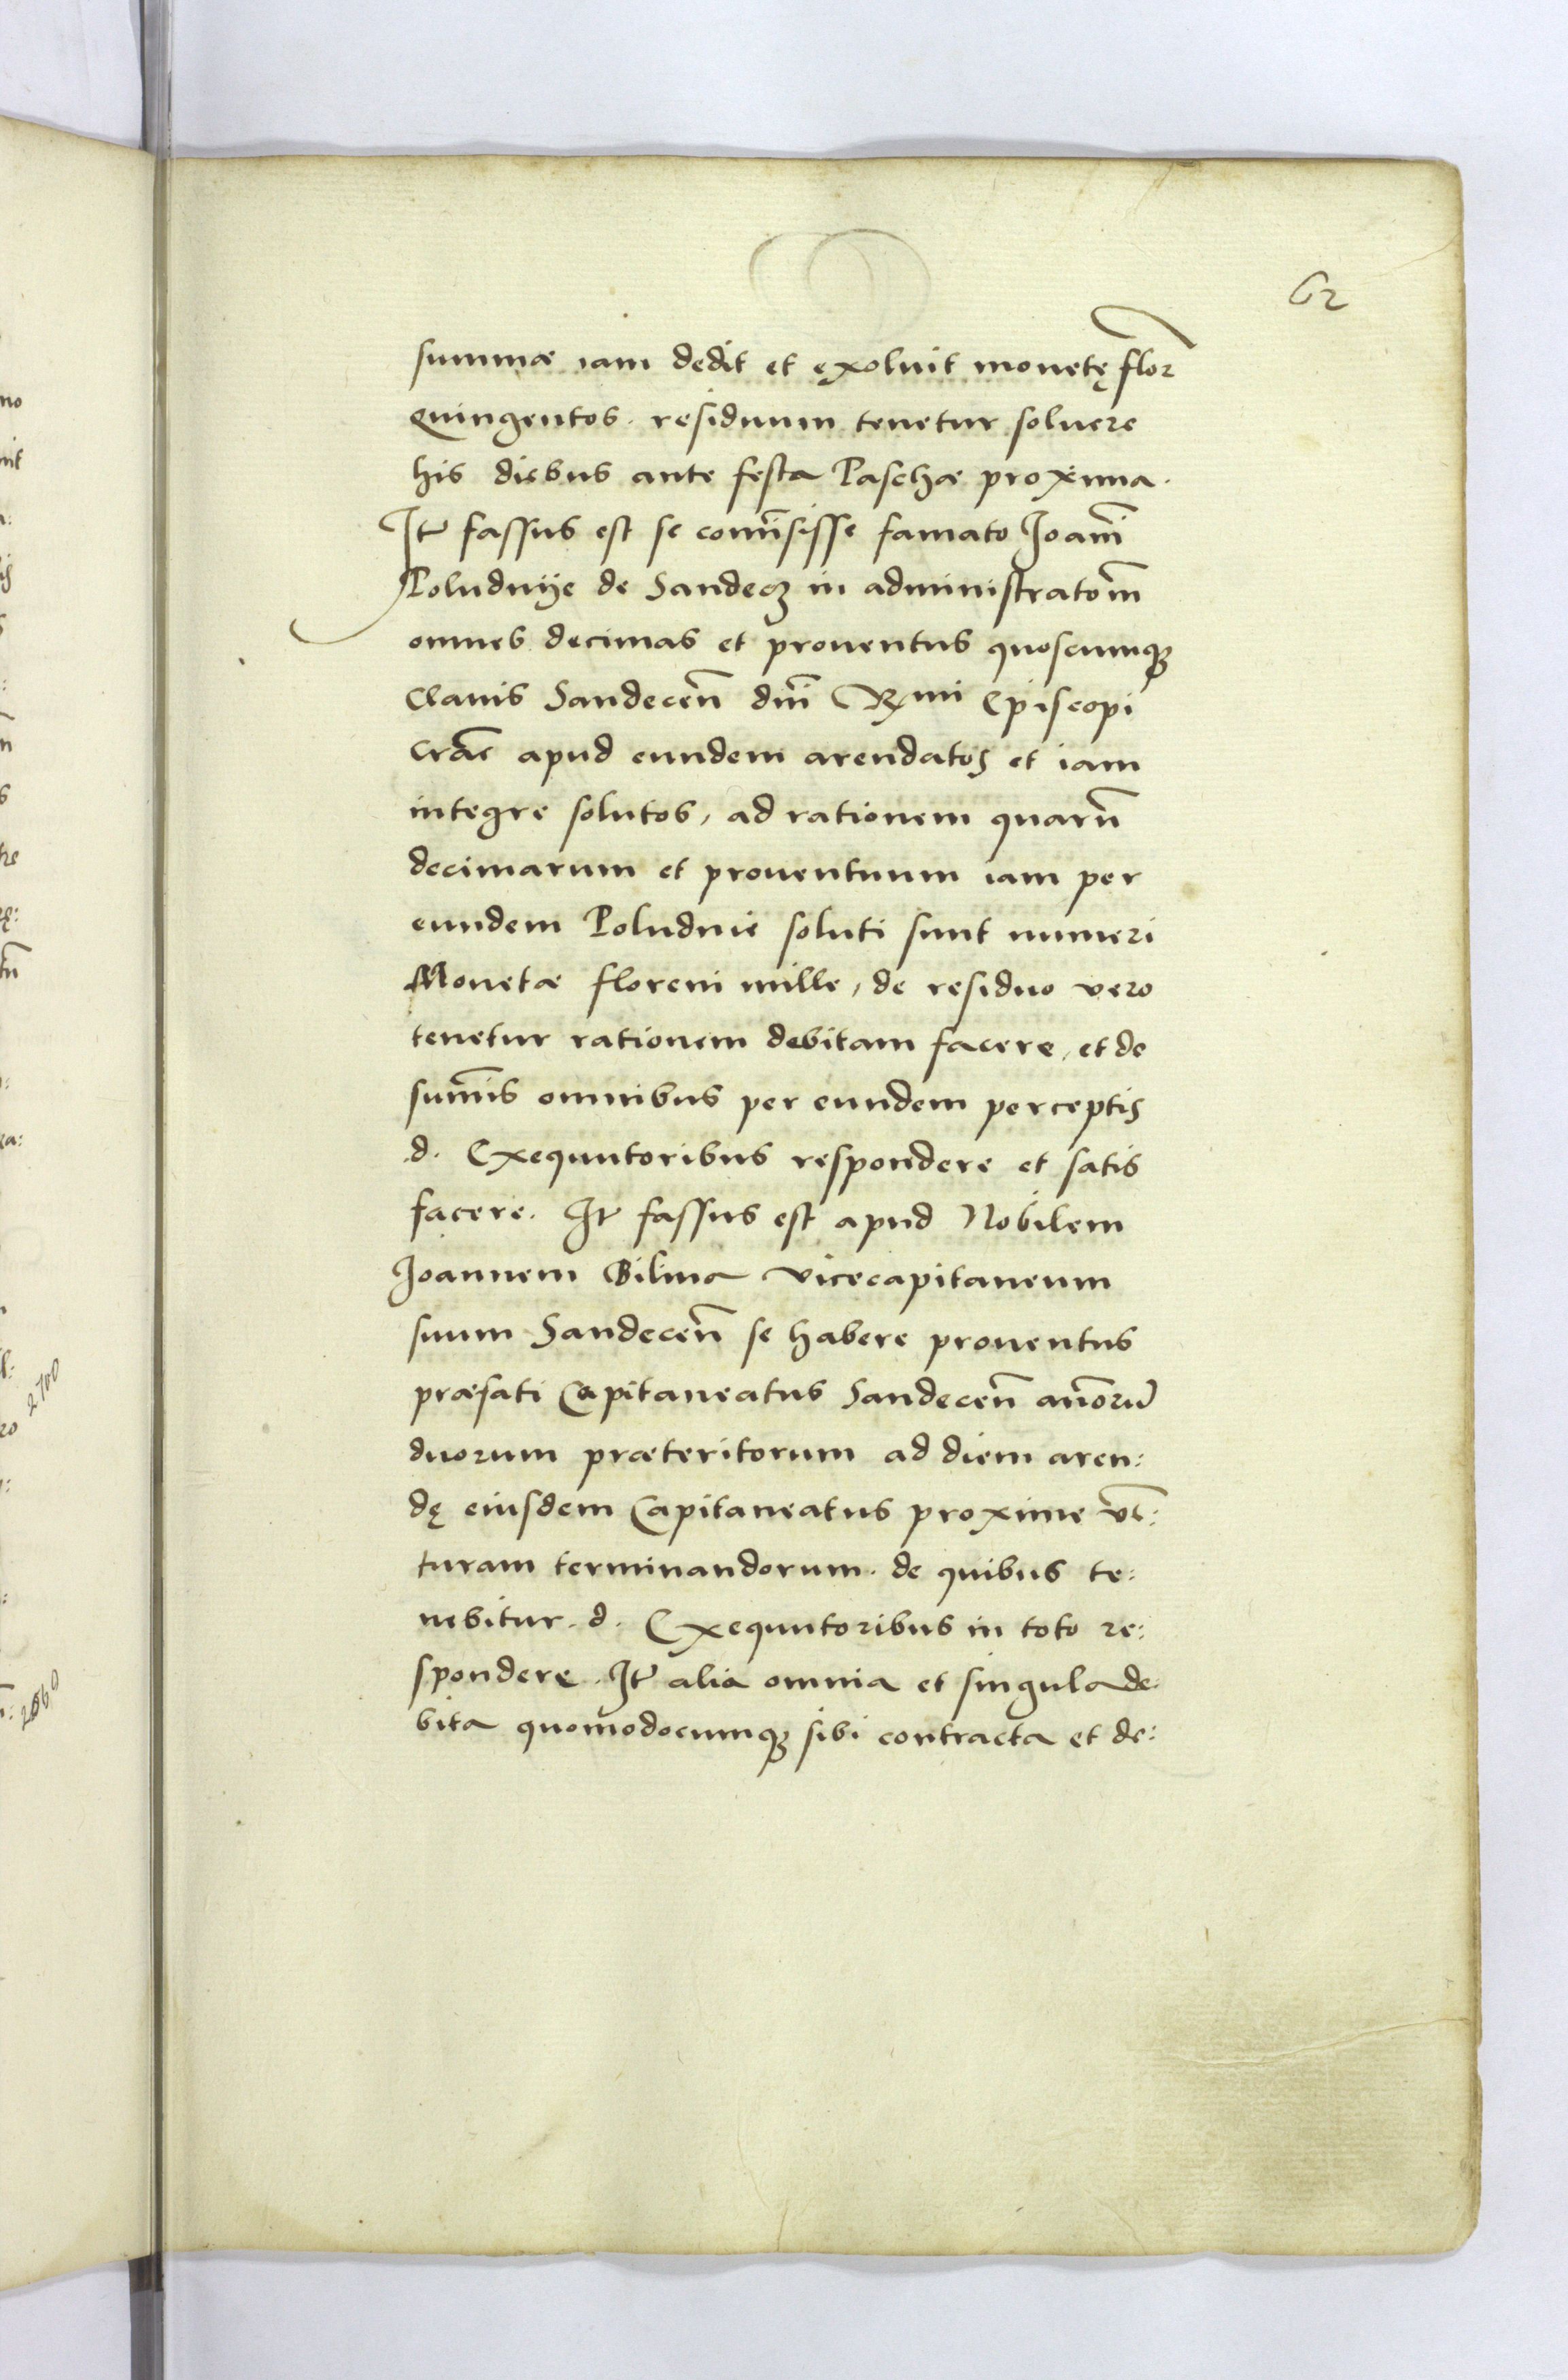 62
summæ iam dedit et exoluit monetę flor̃
Quingentos. residuum tenetur soluere
his diebus ante festa Paschæ proxima.
It̃ fassus est se com̃isisse famato Joañi
Poludnije de Sandecz in administratoẽm
omnes decimas et prouentus quoscumqꝫ
Clauis Sandeceñ dñi Rmi Episcopi
Crac̃ apud eundem arendatos et iam
integre solutos, ad rationem quarũ
decimarum et prouentuum iam per
eundem Poludnie soluti sunt numeri
Monetæ floreni mille, de residuo vero
tenetur rationem debitam facere, et de
sum̃is omnibus per eundem perceptis
d. Exequutoribus respondere et satis
facere. It̃ fassus est apud Nobilem
Joannem Bilina Vicecapitaneum
suum Sandeceñ se habere prouentus
præfati Capitaneatus Sandeceñ añorũ
duorum præteritorum ad diem aren:
dę eiusdem Capitaneatus proxime vẽ:
turam terminandorum. de quibus te:
nebitur. d. Exequutoribus in toto re:
spondere. It̃ alia omnia et singula de:
bita quomodocumqꝫ sibi contracta et de:
2700